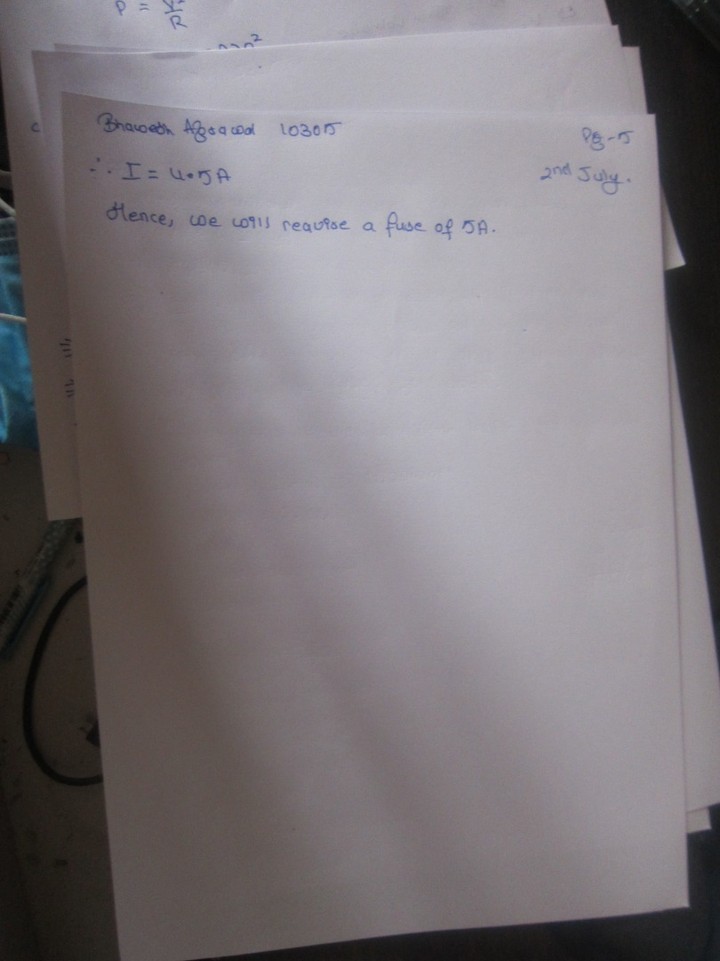 P = V²/R
Bhavesh Agrawal 10305
Pg-5
∴ I = 4.5A
2nd July.
Hence, we will require a fuse of 5A.